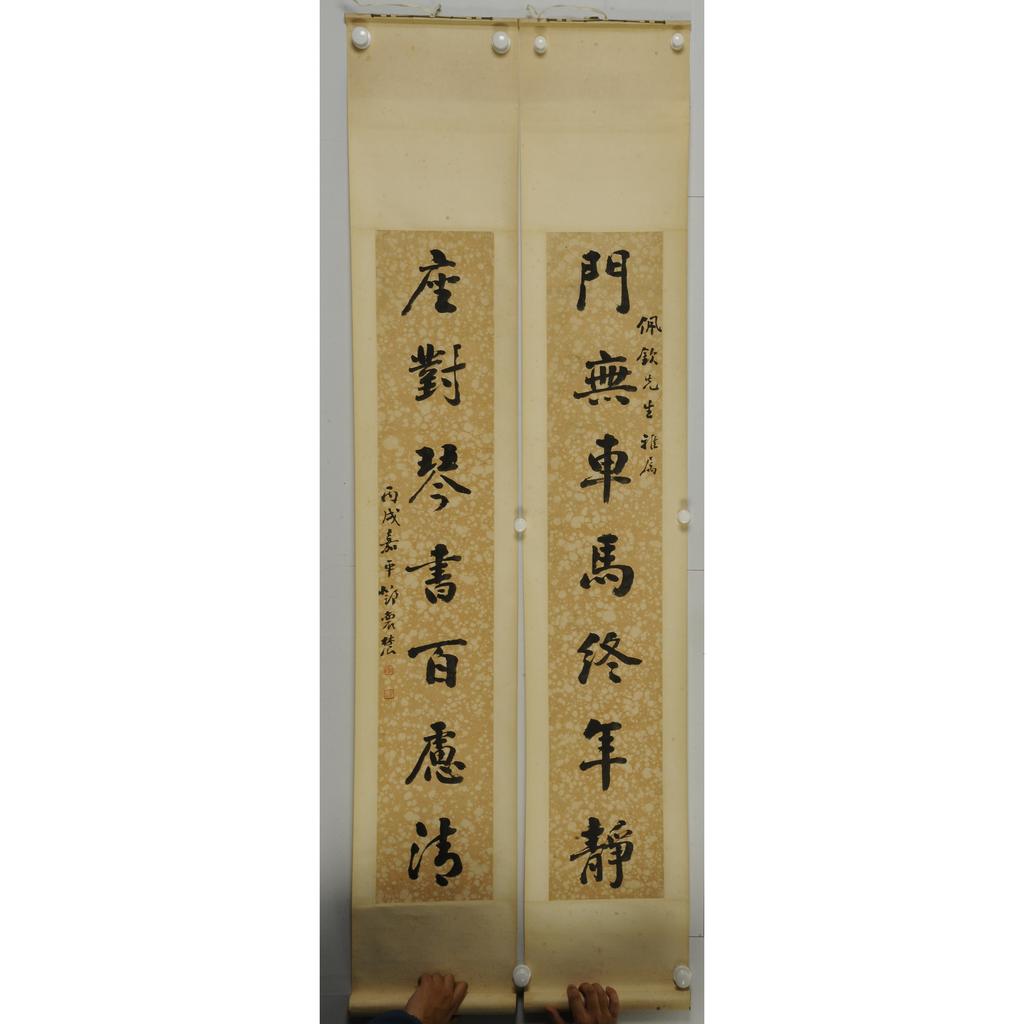 門無車馬終年靜
佩欽先生雅属
座對琴書百慮清
丙戌嘉平